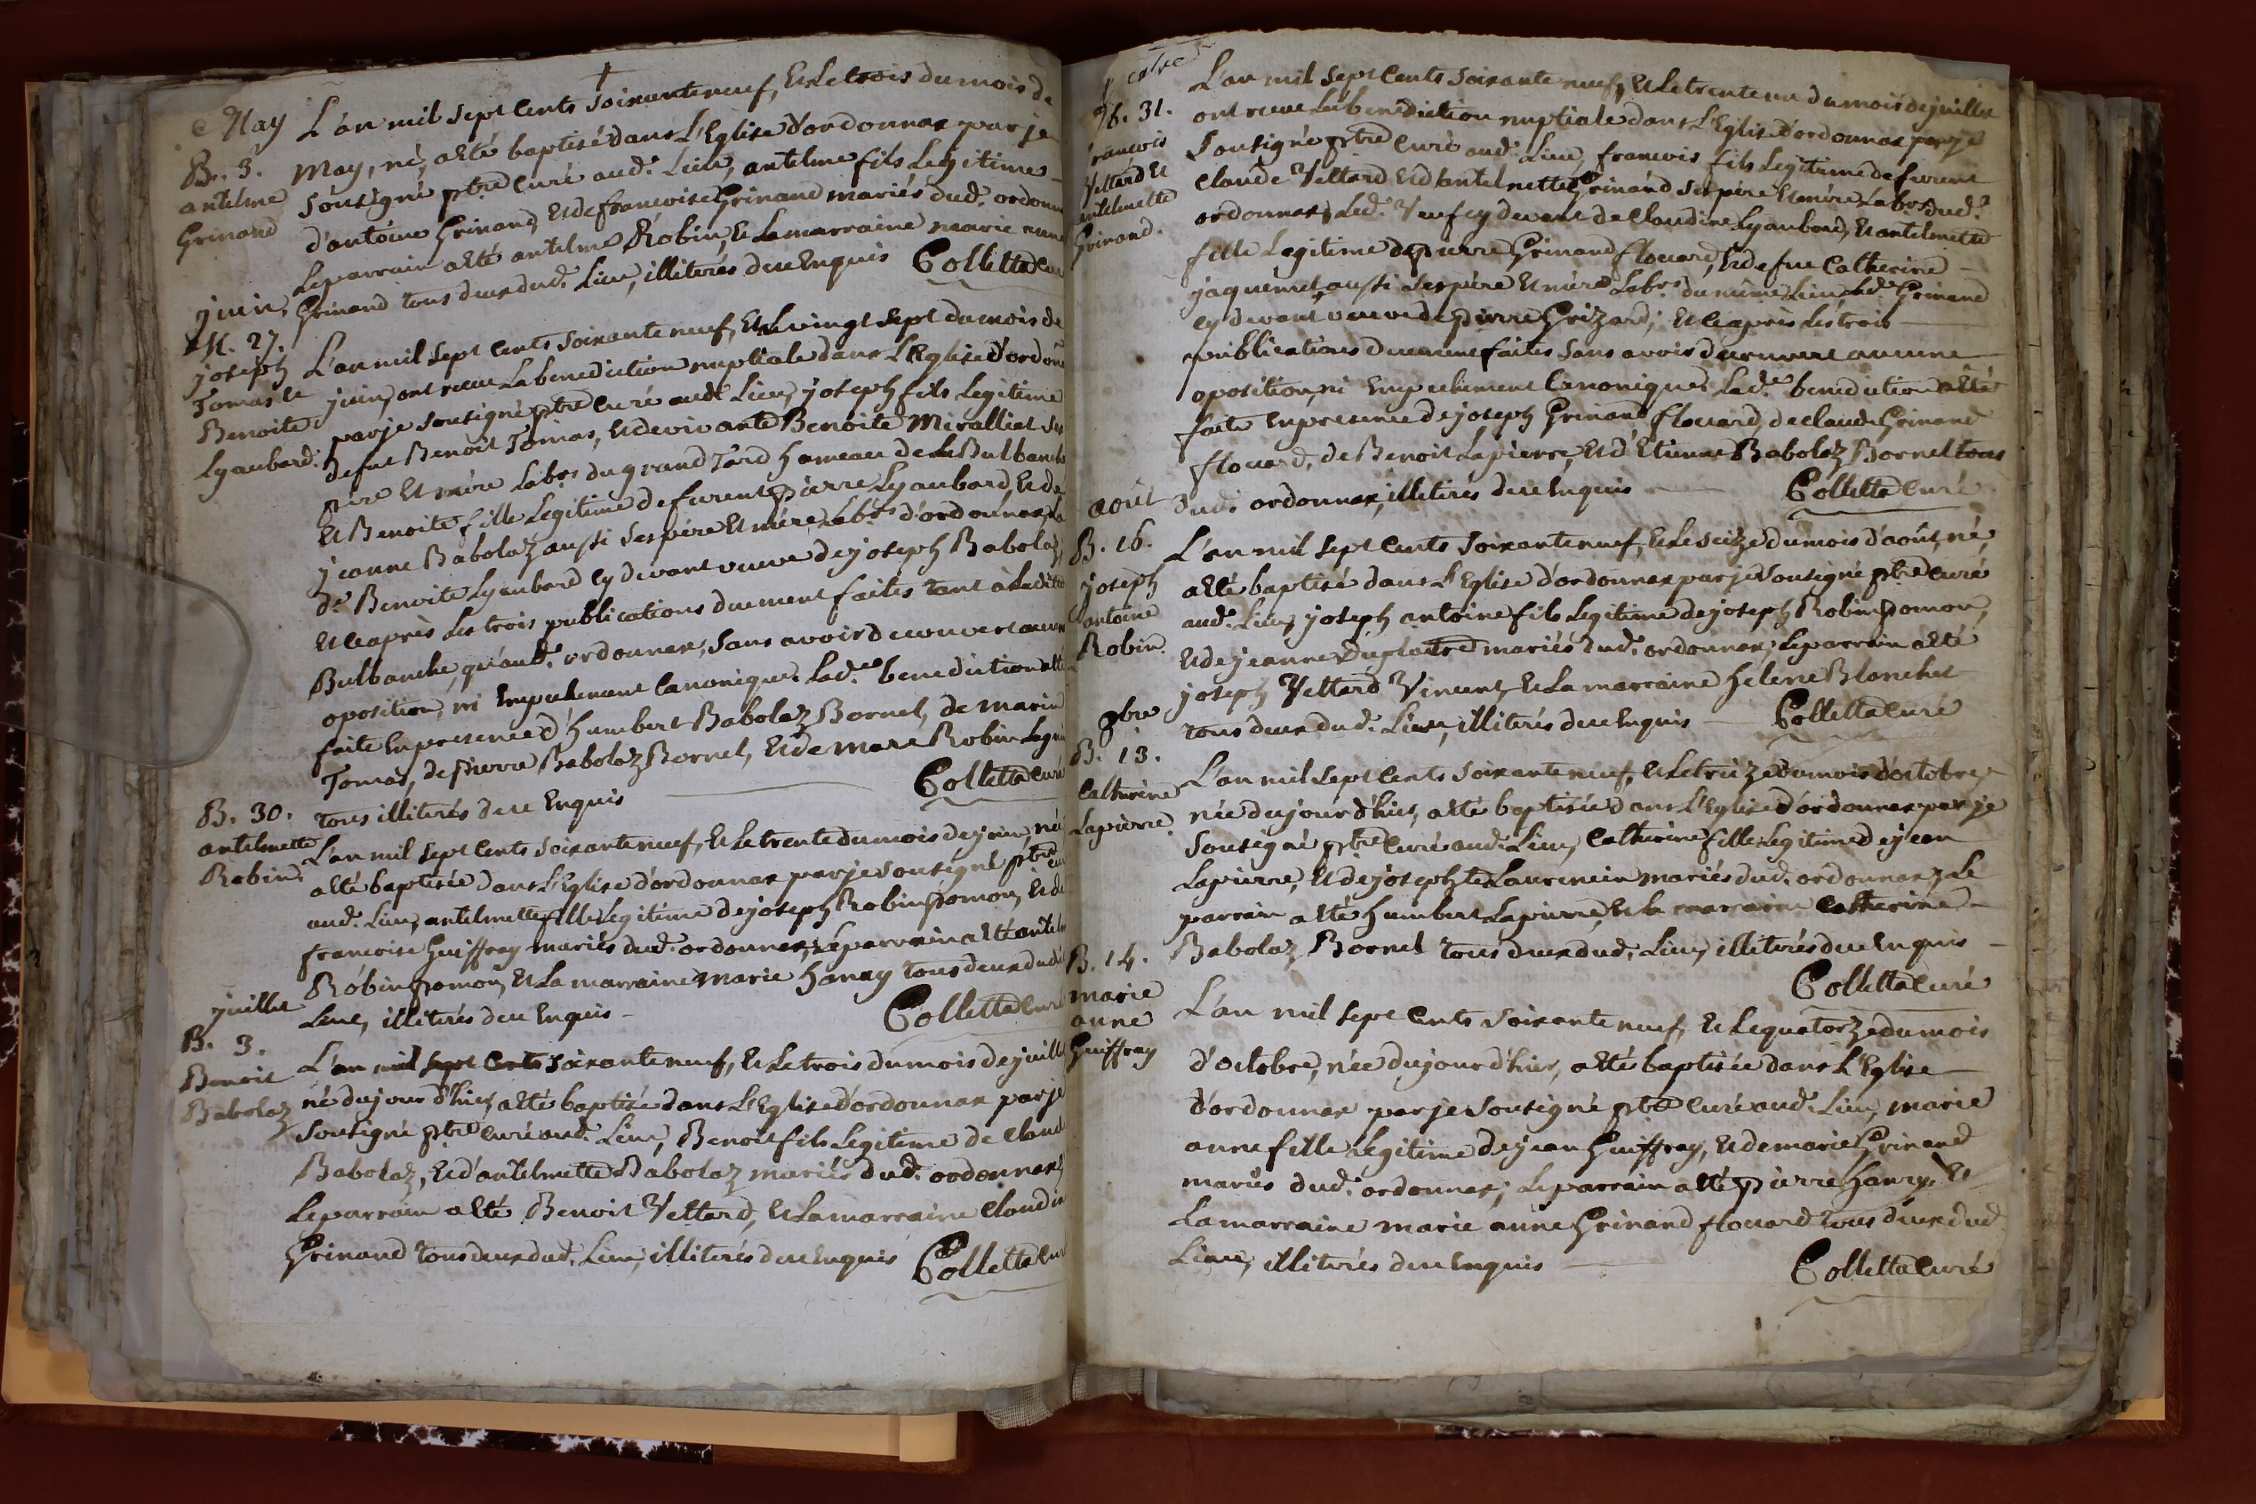 May
B. 3.
antelme
Grinand
L'an mil sept cents soixante neuf, et le trois du mois de
May, né, a été baptisé dans L'Eglise d'ordonnax par je
sousigné ptre curé aud. Lieu, antelme fils Legitime
d'antoine Grinand, et de francoise Grinand mariés dud. ordonn
Le parrain a été antelme Robin, et La marraine marie anne
Grinand tous deux dud. Lieu, illiterés de ce Enquis Colletta Curé
juin
M. 27.
joseph
Tomas et
Benoite
Lyaubard.
L'an mil sept cents soixante neuf, et le vingt sept du mois de
juin, ont receu La benediction nuptiale dans L'Eglise d'ordonn
par je sousigné ptre curé aud. Lieu, joseph fils Legitime
de fut Benoit Tomas, et de vivante Benoite Miralliet ses
père et mére Labrs du grand Tard hameau de La Bulbanche
et Benoite fille Legitime de furent pierre Lyaubard et de
jeanne Babolaz aussi ses pére et mére, Labrs d'ordonnax, La
de Benoite Lyaubard cy devant veuve de joseph Babolaz,
et ce après les trois publications duement faites tant à Ladite
Bulbanche, qu'aud. ordonnax, sans avoir decouvert aucune
oposition, ni Empechement canonique. Lade benediction a été
faite En presence d'humbert Babolaz Bornel, de marin
Tomas, de pierre Babolaz Bornel, et de marc Robin
tous illiterés de ce Enquis Colletta Curé
B. 30.
antelmette
Robin
L'an mil sept cents soixante neuf, et le trente du mois de juin, née
a été baptisée dans L'Eglise d'ordonnax par je sousigné ptre curé
aud. Lieu, antelmette fille Legitime de joseph Robin pomon, et de
francoise Guiffray mariés dud. ordonnax, Le parrain a été antelme
Robin pomon, et La marraine marie hanry tous deux dud.
Lieu, illiterés de ce Enquis Colletta Curé
juillet
B. 3.
Benoit
Babolaz
L'an mil sept cents soixante neuf, et le trois du mois de juillet
né du jour d'hier, a été baptizé dans L'Eglise d'ordonnax par je
sousigné ptre curé aud. Lieu, Benoit fils Legitime de Claude
Babolaz, et d'antelmette Babolaz mariés dud. ordonnax,
Le parrain a été Benoit Vettard, et La marraine Claudine
Grinand tous deux dud. Lieu, illiterés de ce Enquis Colletta Curé
M. 31.
francois
Vettard et
antelmette
Grinand.
L'an mil sept cents soixante neuf, et le trente un du mois de juillet
ont receu La benediction nuptiale dans L'Eglise d'ordonnax par je
sousigné ptre curé aud. Lieu, francois fils Legitime de furent
Claude Vettard et d'antelmette Grinand ses père et mére Labrs dud.
ordonnax, Led. Veuf cy devant de Claudine Lyaubard, et antelmette
fille Legitime de pierre Grinand flouard, et de fue Catherine
jaquemet, aussi ses pére et mére Labrs du même Lieu, Lade Grinand
cy devant veuve de pierre Grizard; et ce après les trois
publications duement faites sans avoir decouvert aucune
oposition, ni Empechement canonique. Lade benediction a été
faite En presence de joseph Grinand flouard, de claude Grinand
flouard, de Benoit Lapierre, et d'Etienne Babolaz Bornel tous
dud. ordonnax, illiterés de ce Enquis Colletta Curé
août
B. 16.
joseph
antoine
Robin
L'an mil sept cents soixante neuf, et le seize du mois d'août, né,
a été baptisé dans L'Eglise d'ordonnax par je sousigné ptre curé
aud. Lieu, joseph antoine fils Legitime de joseph Robin pomon,
et de jeanne Duplatre mariés dud. ordonnax, Le parrain a été
joseph Vettard Vincent, et La marraine helene Blanchet
tous deux dud. Lieu, illiterés de ce Enquis Colletta Curé
8bre
B. 13.
Catherine
Lapierre
L'an mil sept cents soixante neuf, et le treize du mois d'octobre
née du jour d'hier, a été baptisée dans L'Eglise d'ordonnax par je
sousigné ptre curé aud. Lieu, Catherine fille Legitime de jean
Lapierre, et de josephte Laurencin mariés dud. ordonnax, Le
parrain a été humbert Lapierre, et la marraine Catherine
Babolaz Bornel tous deux dud. Lieu, illiterés de ce Enquis
Colletta Curé
B. 14.
marie
anne
Guiffray
L'an mil sept cents soixante neuf, et le quatorze du mois
d'octobre, née du jour d'hier, a été baptisée dans L'Eglise
d'ordonnax par je sousigné ptre curé aud. Lieu, marie
anne fille Legitime de jean Guiffray, et de marie Grinand
mariés dud. ordonnax; Le parrain a été pierre hanry, et
La marraine marie anne Grinand flouard tous deux dud.
Lieu, illiterés de ce Enquis Colletta Curé